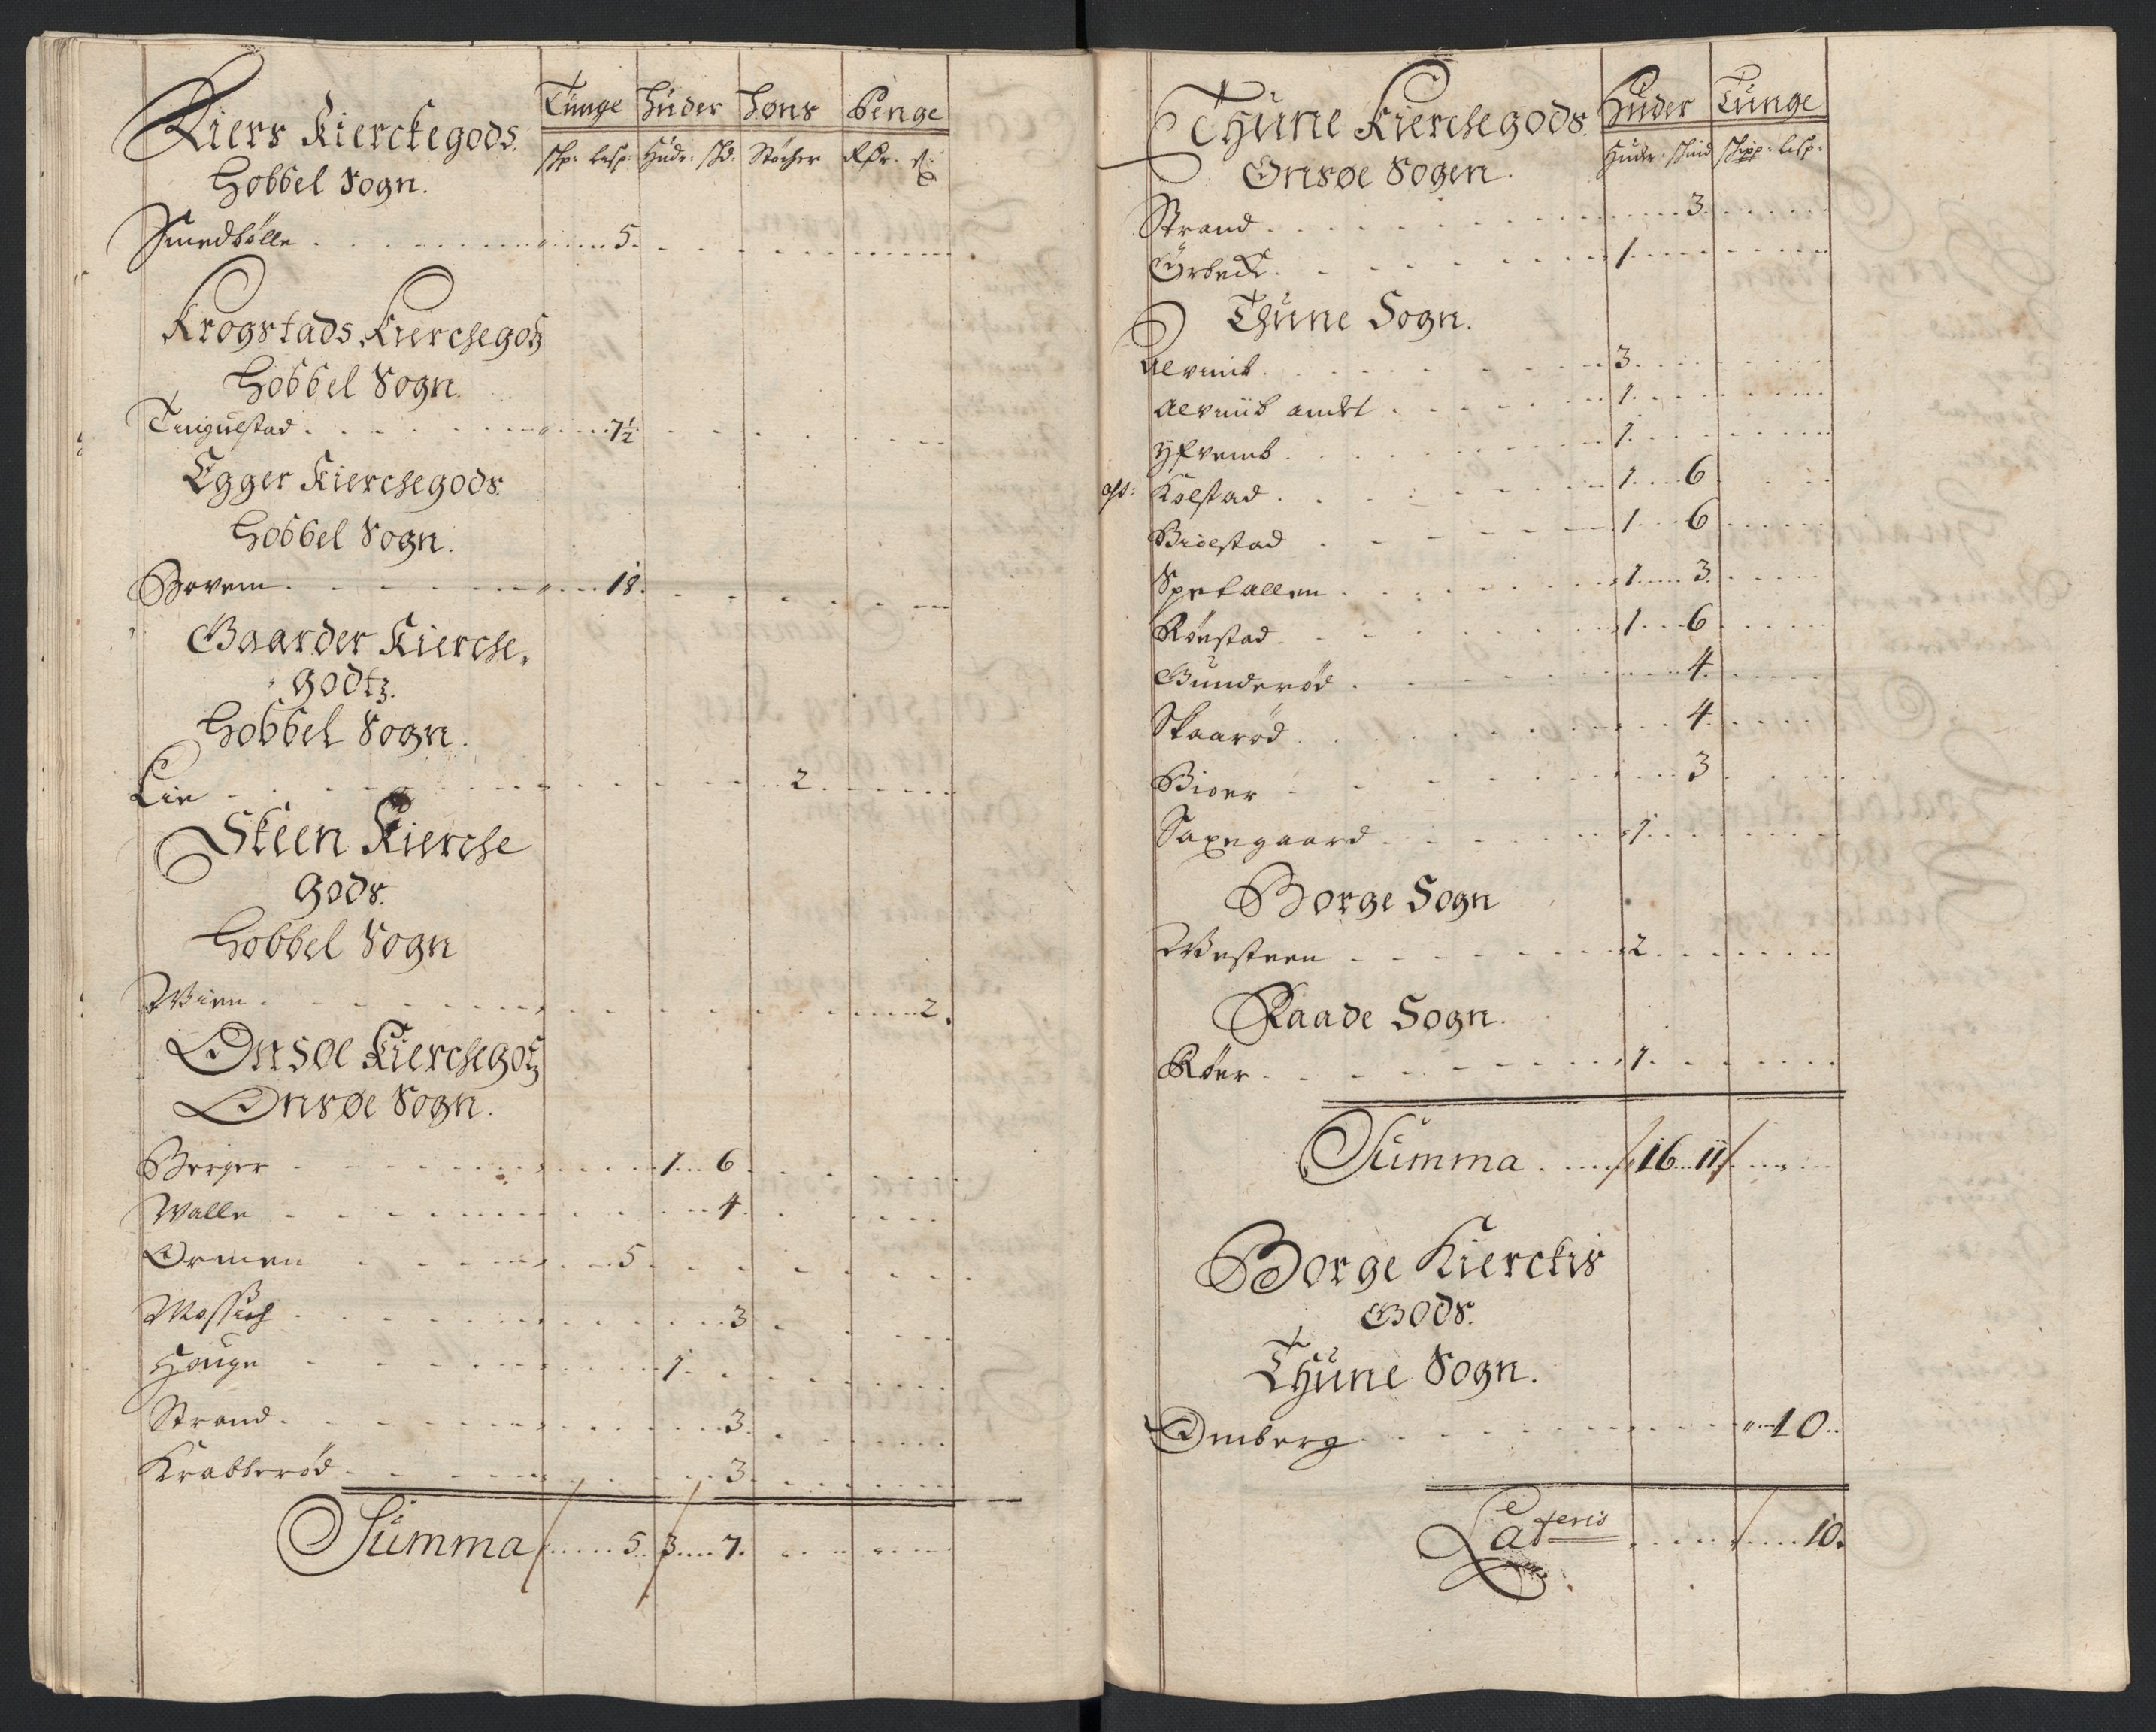 Kiers Kierckegods. Tunge Huder Høns Penge
schp: lisp: Hudr: skd: Støcher Rdr.
Hobbel Sogn.
Smedbølle 5.
Krogstads Kierchegotz
Hobbel Sogn.
Tingulstad 7½
Egger Kierchegods
Hobbel Sogn.
Borem 18.
Gaarder Kierche
godtz.
Hobbel Sogn.
Lie 2
Skeen Kierche
Gods.
Hobbel Sogn
Wien 2.
Onsøe Kierchegotz
Onsøe Sogn.
Berger 1 6
Walle 4
Ormen 5
Mossich 3
Houge 1
Strand 3
Krabberød 3
Summa 5 3 7.
Thune Kierchegods Huder Tunge
Huder: skind schpp: lisp:
Onsøe Sogen
Strand 3
Ørbeck 1
Thune Sogn.
Alvimb 3
Alvimb andet 1
Yfvemb 1
Kolstad 1 6
Biølstad 1 6
Spetallen 1 3
Rørstad 1 6
Gunderød 4
Skaarød 4
Bioer 3
Saxegaard 1
Borge Sogn
Westeen 2
Raade Sogn.
Røer 1
Summa 16 11
Borge Kierckis
Gods.
Thune Sogn.
Omberg 10
Lateris 10.